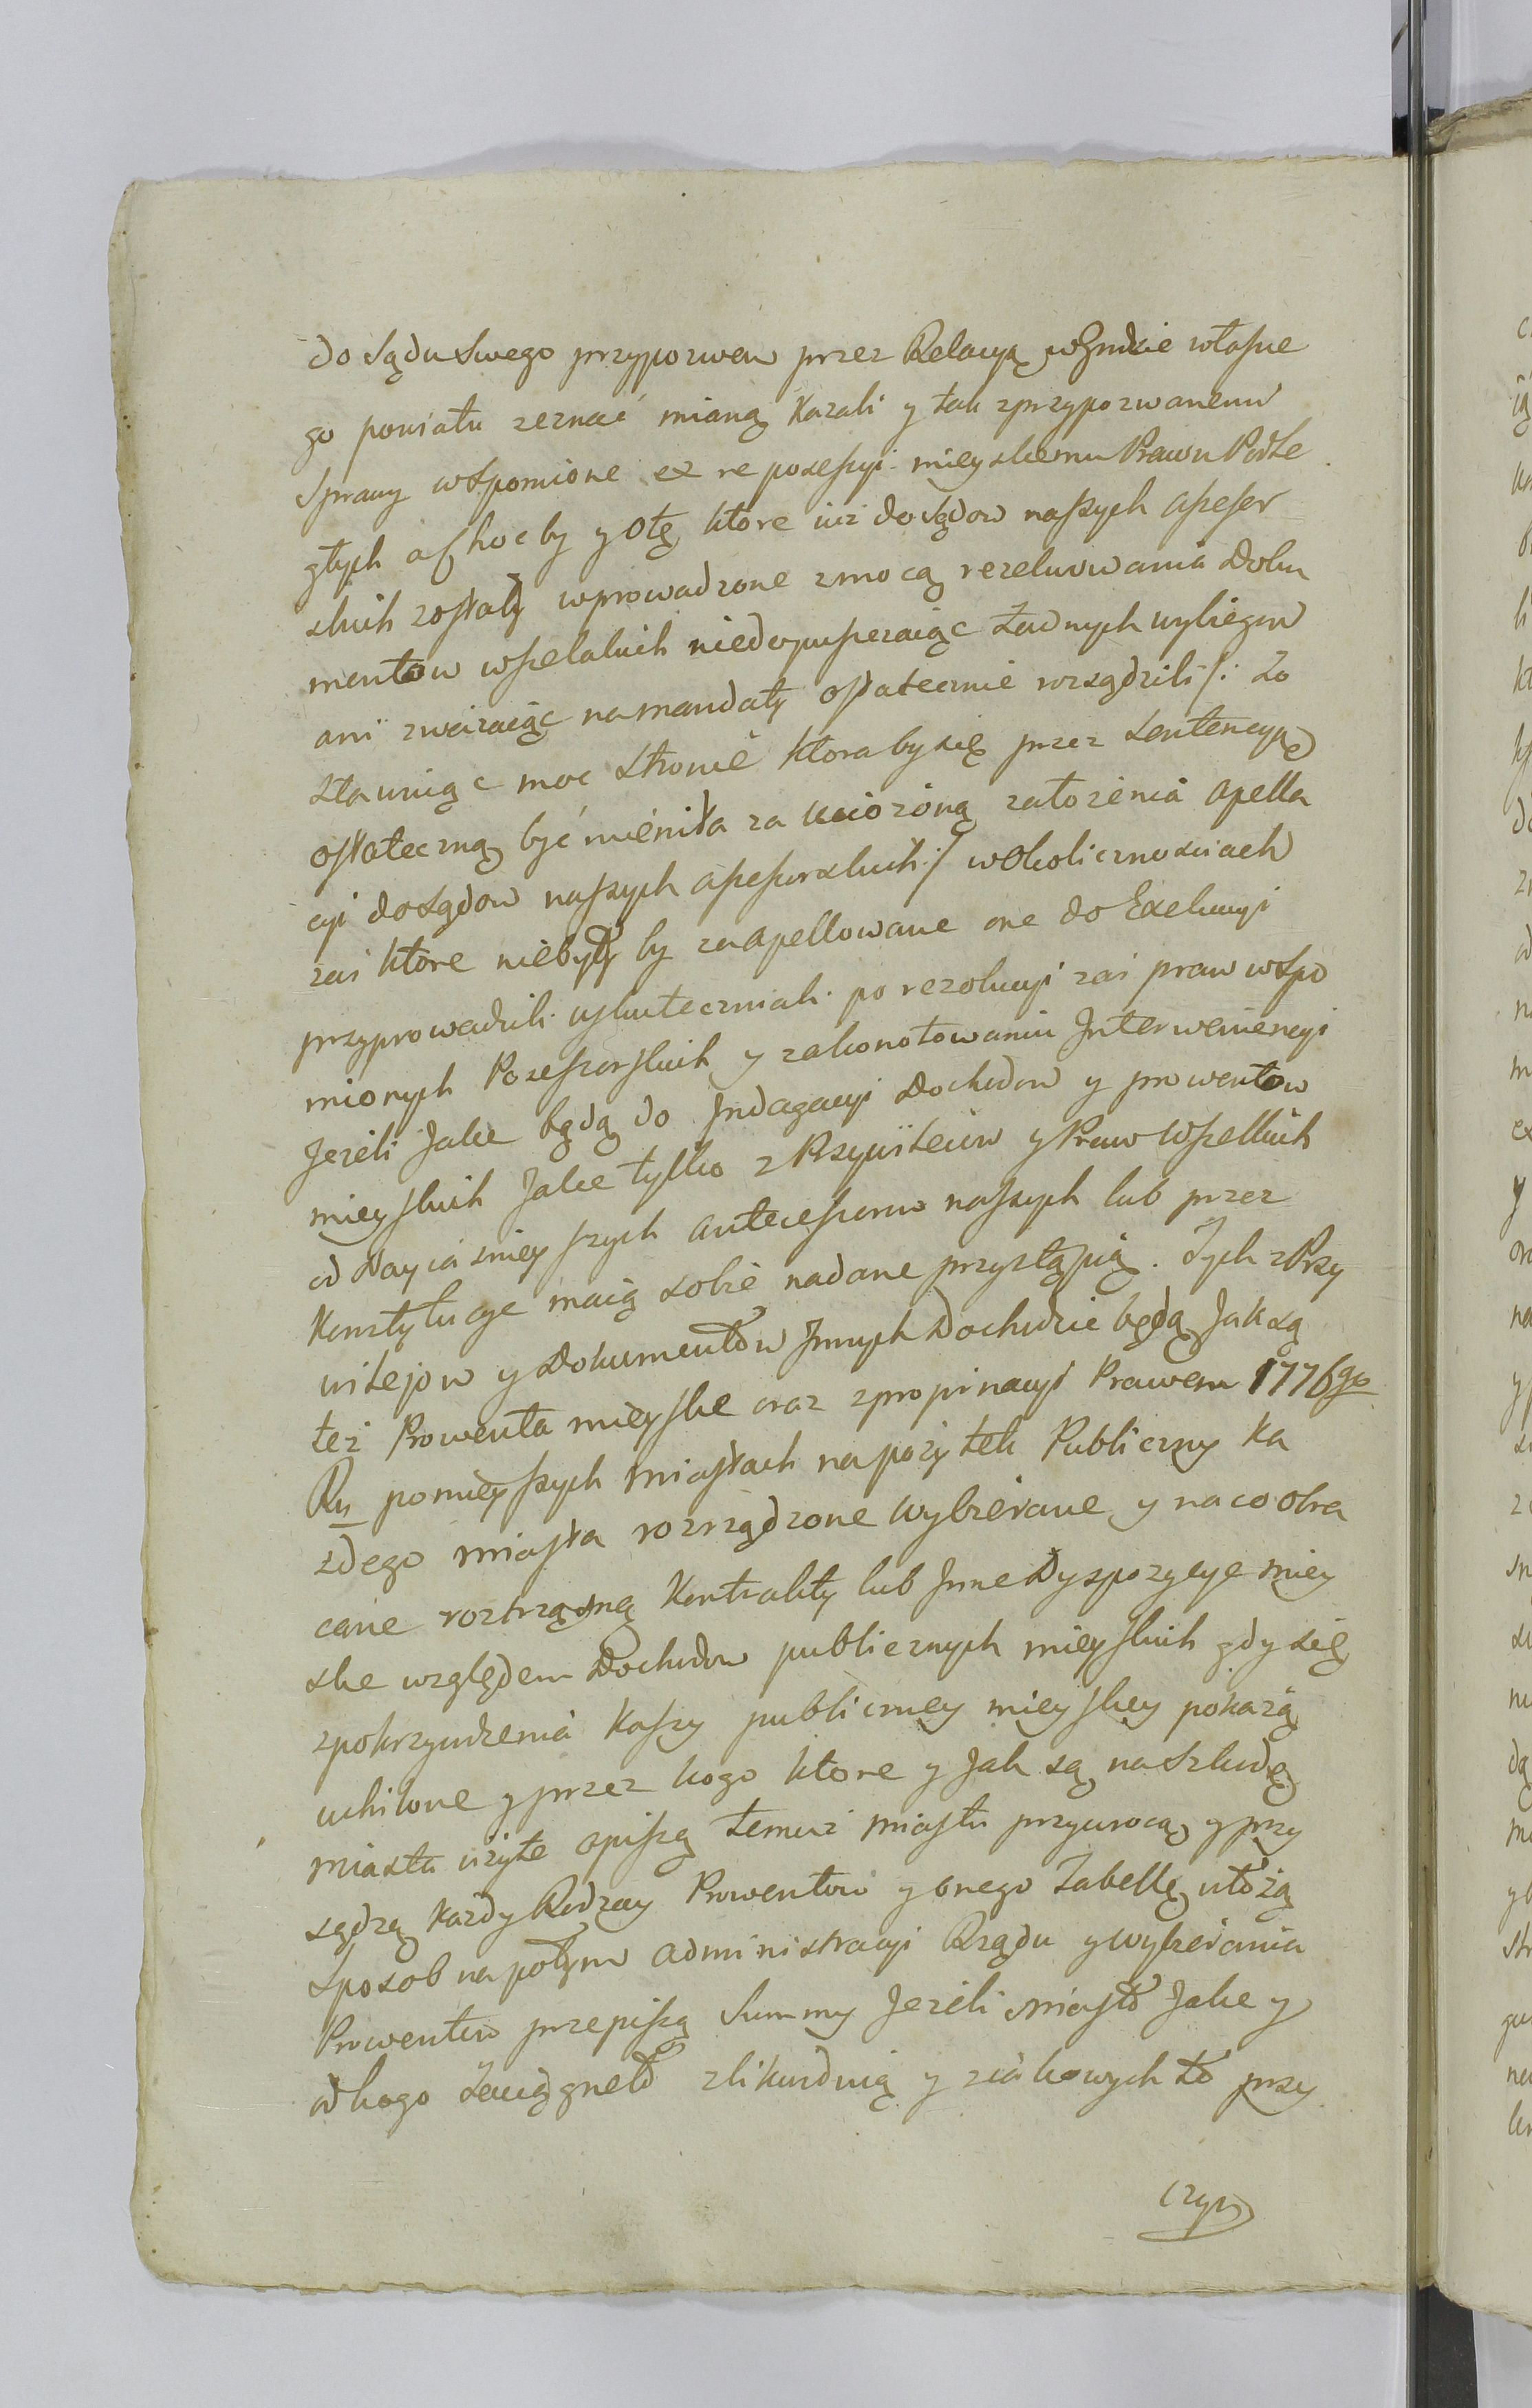 do Sądu Swego przypozwem przez Relacyą w Grodzie własne
go powiatu zeznać mianą kazali y tak zprzypozwanemu
Sprawy wspomione ex re posessyi mieyskiemu Prawu Podle
głych a choc by y Otę, ktore iuz do Sądow naszych assessor
skich zostały wprowadzone zmocą rezelwowania Doku
mentow wszelakich niedopuszczaiąc żadnych wybiegow
ani zwazaiąc na mandaty ostatecznie rozsądzili /: Zo
stawuiąc moc stronie ktora by się przez Sentencyą
ostateczną być mieniła za uciozoną założenia apella
cyi do sądow naszych assessorskich :/ w Okolicznosciach
zas ktore niebyły by zaapellowane one do Exekucyi
przyprowadzili uskuteczniali. po rezolucyi zas praw wspo
mionych Posessorskich y zakonotowaniu Interweniencyi
Jezeli Jakie będą do Indagacyi Dochodow y prowentow
mieyskich Jakie tylko z Przywileiow y Praw Wszelkich
od Nayiasnieyszych antecessorow naszych lub przez
Konstytucye maią sobie nadane przystąpią. Tych z Przy
wilejow y Dokumentow Innych Dochodzic będą Jak są
też Prowenta mieyskie oraz z propinacyi Prawem 1776go
Ru pomnieyszych miastach na pożytek Publiczny Ka
zdego miasta rozrządzone wybierane y na co obra
cane roztrząsną Kontrakty lub Inne Dyspozycye miey
skie względem Dochodow publicznych mieyskich gdy się
zpokrzywdzenia Kassy publiczney mieyskiey pokażą
uchilone y przez kogo ktore y Jak są na Szkodę
miasta użyte opiszą temuż miastu przywrocą y przy
sądzą każdy Rodzay Prowentow y onego Tabellę ułożą
Sposob napotym administracyi Rządu y wybierania
Prowentow przepiszą Summy Jezeli miasto Jakie y
od kogo Zaciągneło zlikwidują y z iakowych to przy
czyn